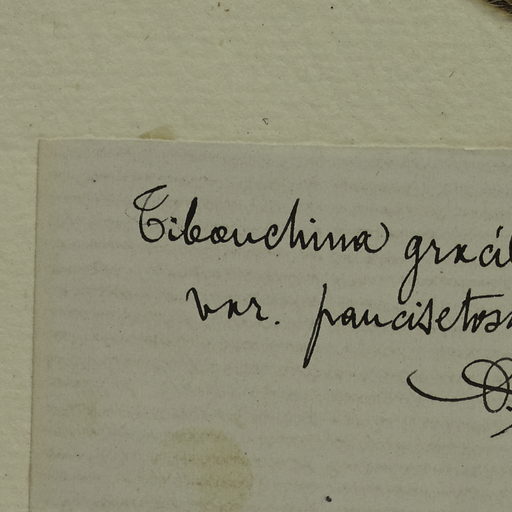 Tibouchina gracil
var. paucisetos